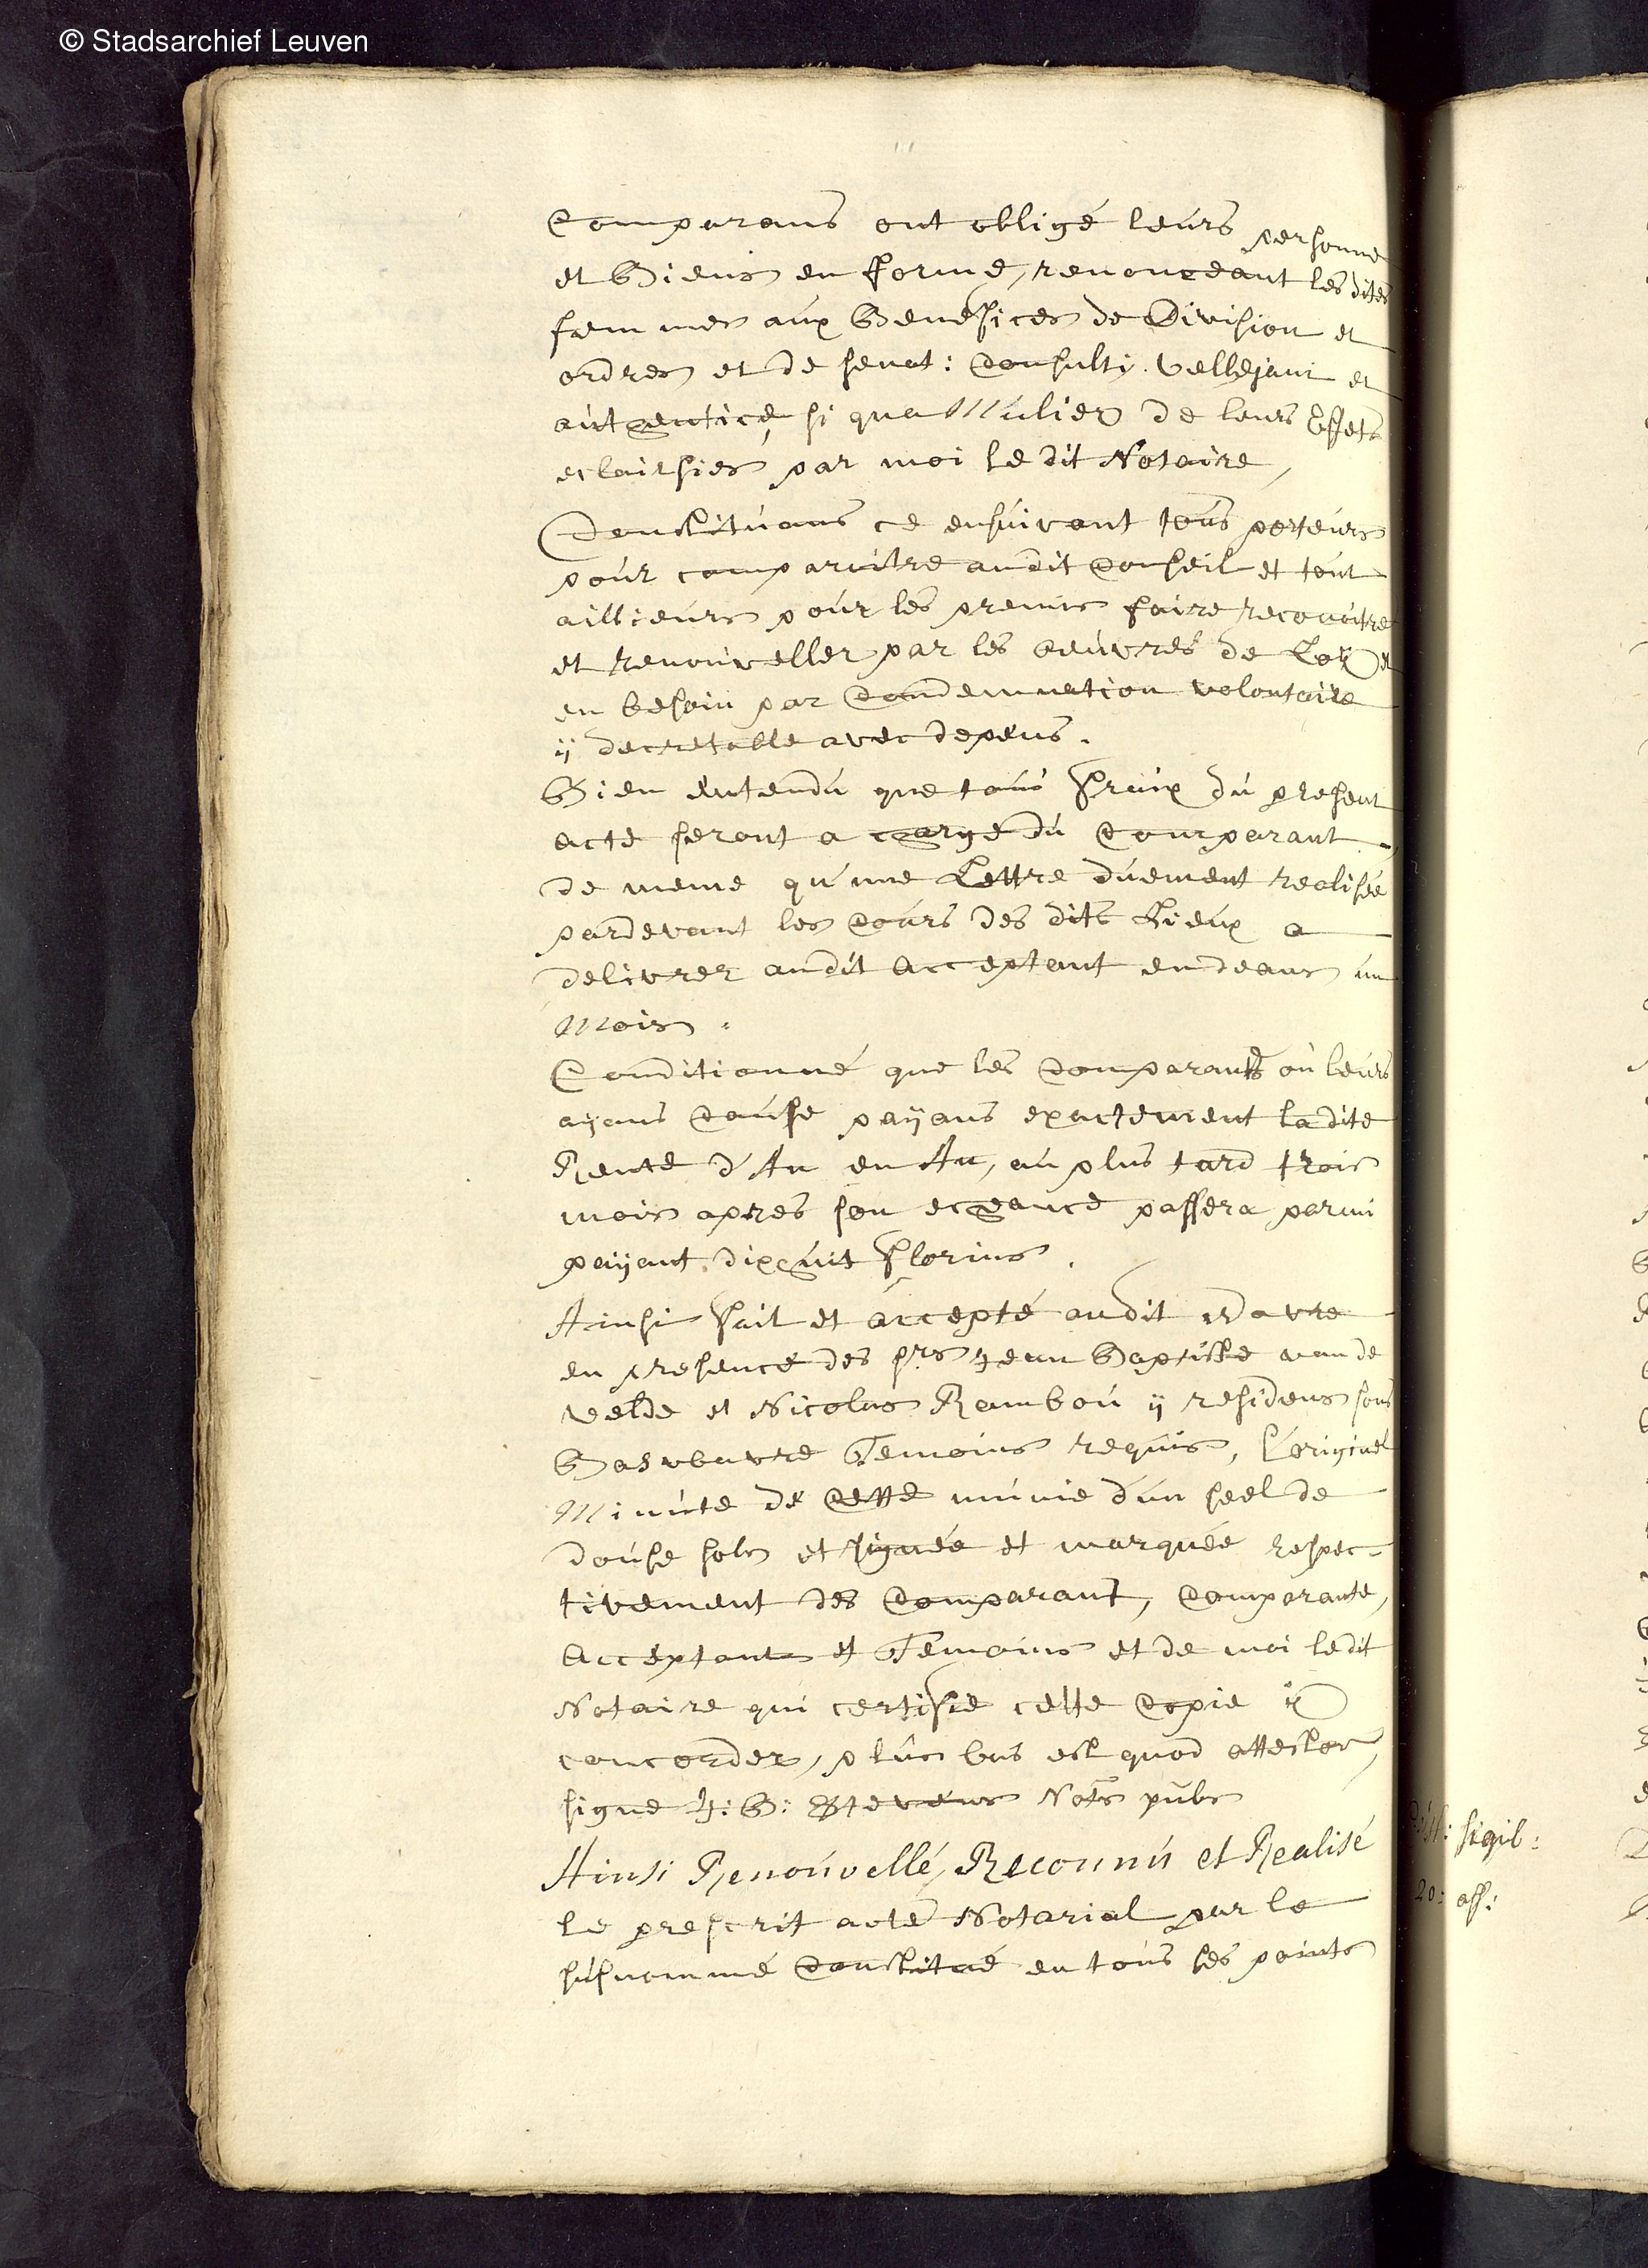 © Stadsarchief Leuven
Comparans ont obligé leurs personne
et Biens en forme, renonceant les dites
femmes aux Benefices de Division et
ordres et de senat: Consulti Vellejani et
autentice si qua Mulier de leurs Effets
eclairsies par moi ledit Notaire,
Constituans ce ensuivant tous porteurs
pour comparaitre audit Conseil et tout
aillieurs pour les premis faire reconoitre
et renouveller par les oeuvres de Loÿ et
en besoin par Condemnation volontaire
ÿ decretable avec depens.
Bien entendu que tous fraix du present
acte seront a charge du Comparant,
de meme qu'une Lettre duement realisée
pardevant les Cours des dits Lieux a
delivrer audit acceptant endeans un
Mois.
Conditionné que les Comparants ou leurs
aÿans Cause paÿans exactement la dite
Rente d'An en An, au plus tard trois
mois apres son echeance passera parmi
paÿant dixhuit florins.
Ainsi fait et accepté audit Wavre
en presence des srs Jean Baptiste vande
velde et Nicolas Rambou ÿ residens sous
Baswavre Temoins requis, l'originel
Minute de Cette munie d'un seel de
douse sols et signée et marquée respec-
tivement des Comparant, Comparante,
acceptant et Temoins et de moi ledit
Notaire qui certifie cette Copie ÿ
concorder, plus bas est quod attestor,
signe J: B: Stevens Nots pubs
Ainsi Renouvellé, Reconnu et Realisé
le prescrit acte Notarial par le
susnommé Constitué en tous ses points
sigil:
20: ass: